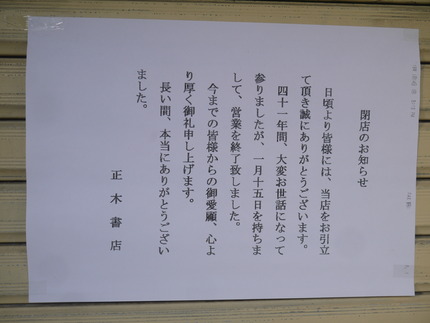 閉店のお知らせ
日頃より皆様には、当店をお引立
て頂き誠にありがとうございます。
四十一年間、大変お世話になって
参りましたが、一月十五日を持ちま
して、営業を終了致しました。
今までの皆様からの御愛顧、心よ
り厚く御礼申し上げます。
長い間、本当にありがとうござい
ました。
正木書店